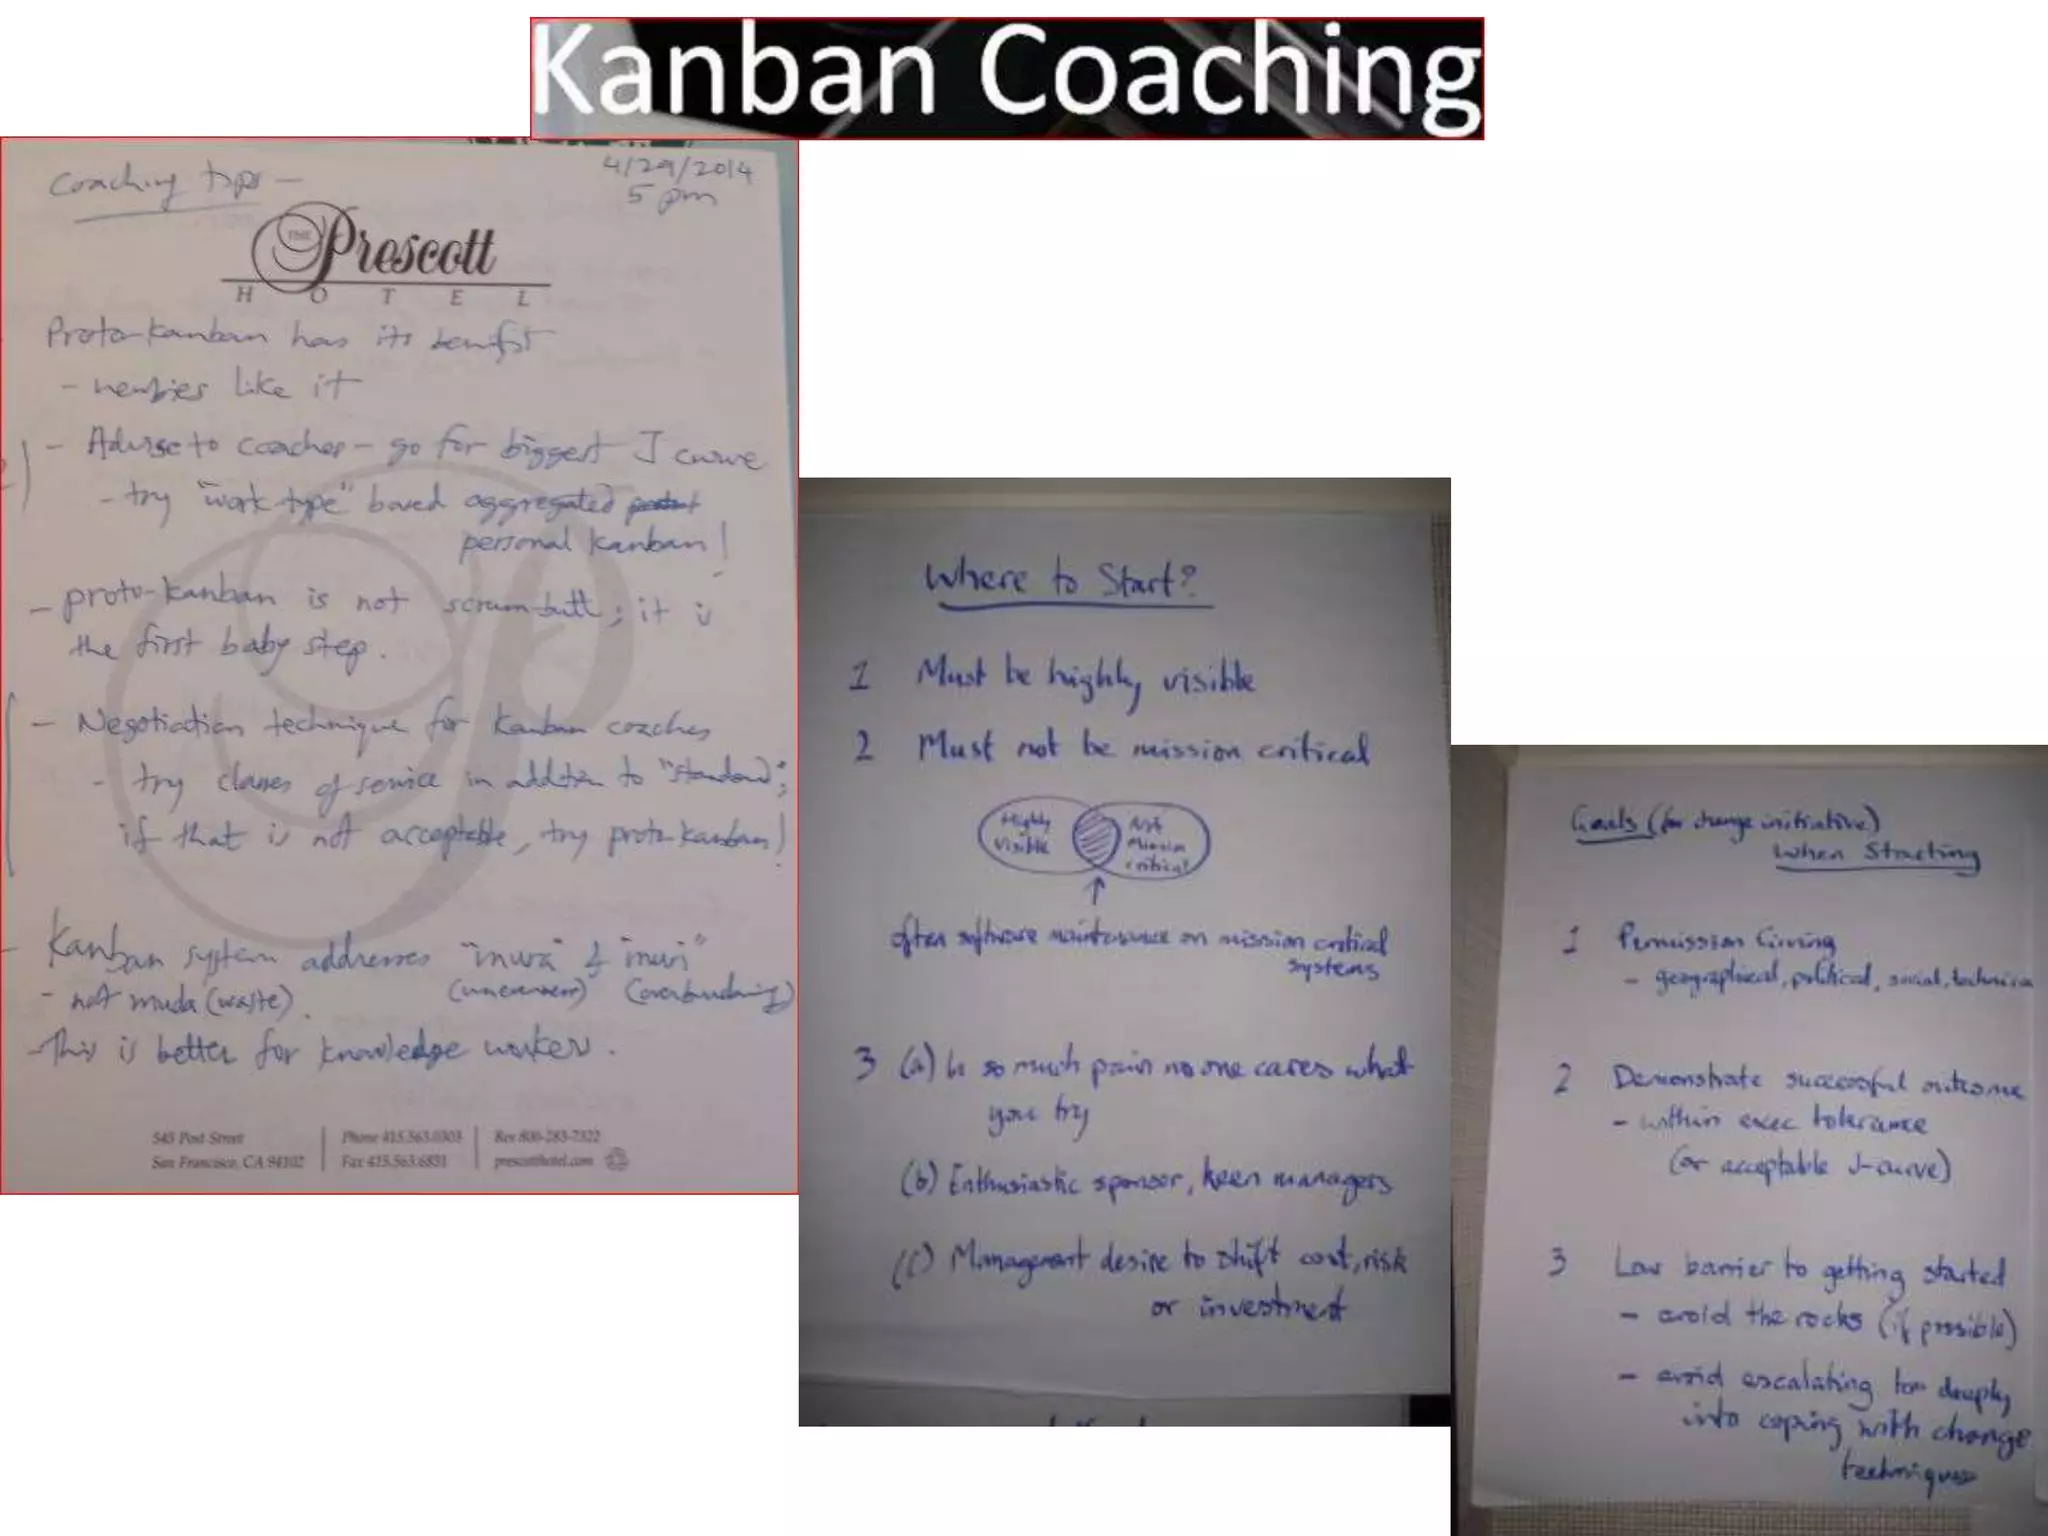 Kanban Coaching
Coaching tips -
4/29/2014
5 pm
THE Prescott
HOTEL
Proto-kanban has its benefit
- newbies like it
- Advise to coaches - go for biggest J curve
- try "work type" based aggregated
personal kanban!
- proto-kanban is not scrum-butt; it is
the first baby step.
- Negotiation technique for kanban coaches
- try classes of service in addition to "standard";
if that is not acceptable, try proto-kanban!
- Kanban system addresses "mura" & "muri"
(unevenness) (overburdening)
- not muda (waste).
- This is better for knowledge workers.
545 Post Street
San Francisco, CA 94102
Phone 415.563.0303
Fax 415.563.6831
Res 800-283-7322
prescotthotel.com
Where to Start?
1 Must be highly visible
2 Must not be mission critical
Highly
Visible
Not
Mission
critical
often software maintenance on mission critical
systems
3 (a) In so much pain no one cares what
you try
(b) Enthusiastic sponsor, keen managers
(c) Management desire to shift cost, risk
or investment
Goals (for change initiative)
When Starting
1 Permission Giving
- geographical, political, social, technical
2 Demonstrate successful outcome
- within exec tolerance
(or acceptable J-curve)
3 Low barrier to getting started
- avoid the rocks (if possible)
- avoid escalating too deeply
into coping with change
techniques